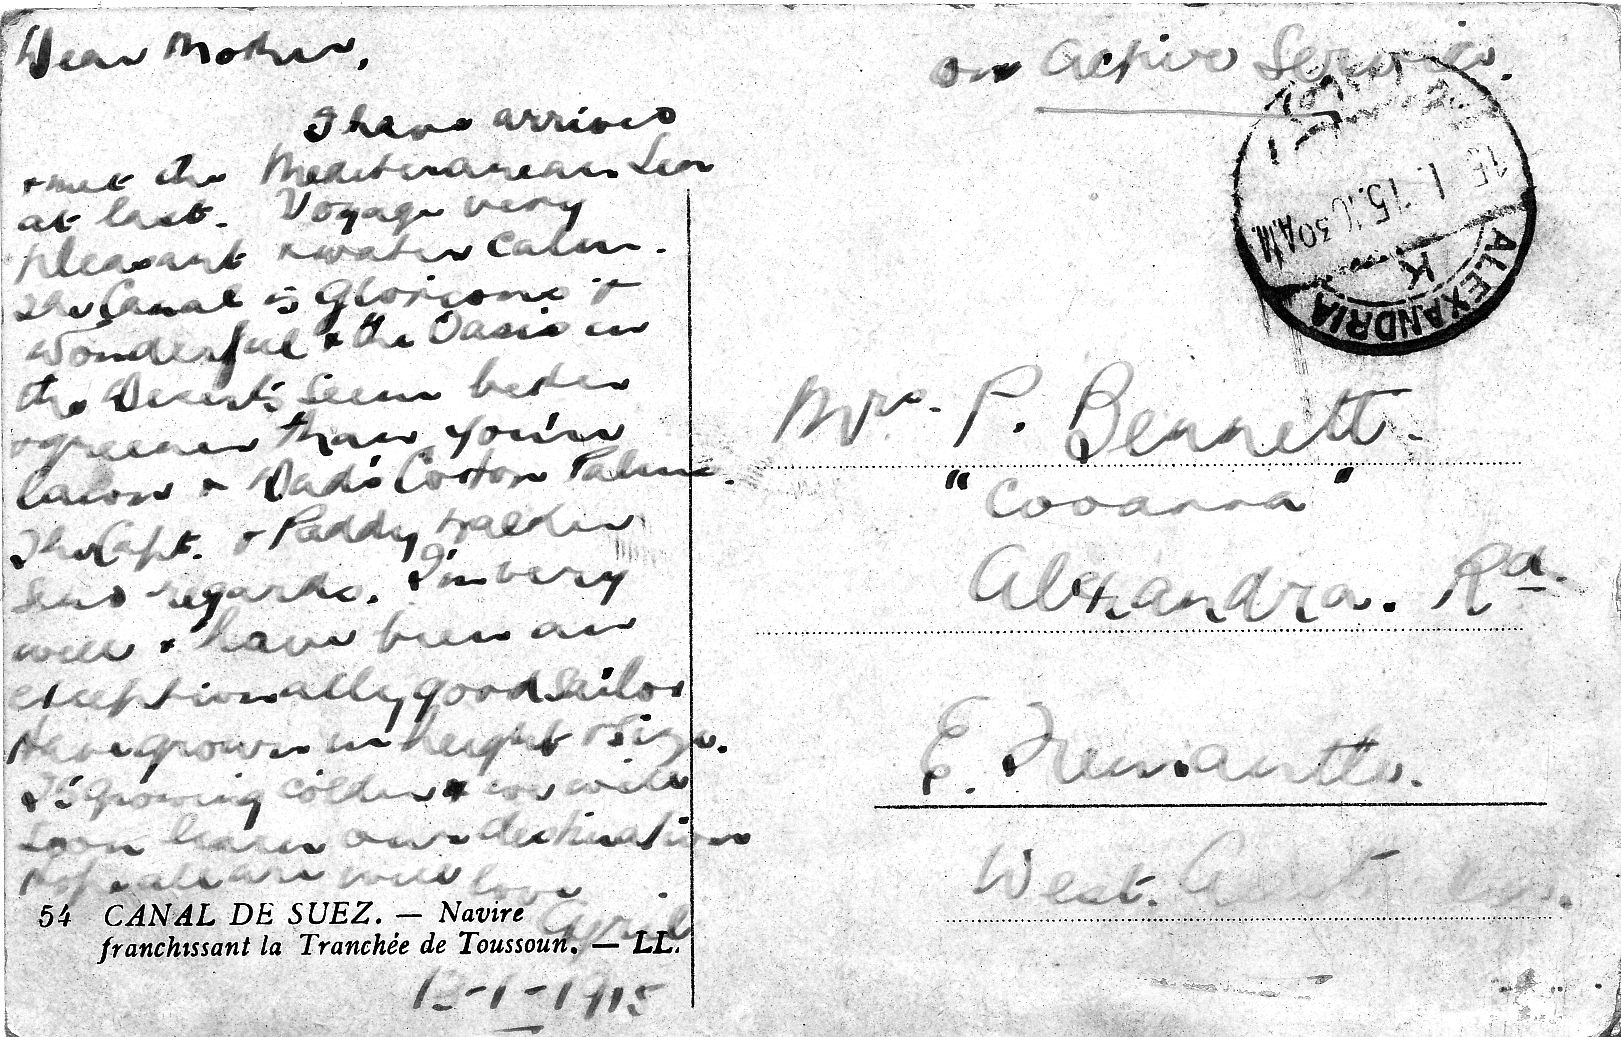 Dear Mother,
I have arrived
& met the Mediteranean Sea
at last. Voyage very
pleasant & water calm.
The Canal is Glorious &
Wonderful & the Oasis in
the Desert's seem better
& greener than you'in
& Dad's Cotton Palms.
The Capt. & Paddy
send regards. I'm very
well & have been an
exceptionally good sailor
Have grown in height & size.
It's growing colder & we will
soon learn our destination
Hope all are well love
Cyril
13-1-1915
54 CANAL DE SUEZ. — Navire
franchissant la Tranchée de Toussoun. — LL.
on Active Service.
ALEXANDRIA
K
15.I.15.10 30AM
Mrs. P. Bennett.
"Cooanna"
Alexandra. Rd.
E. Fremantle.
West. Australia.